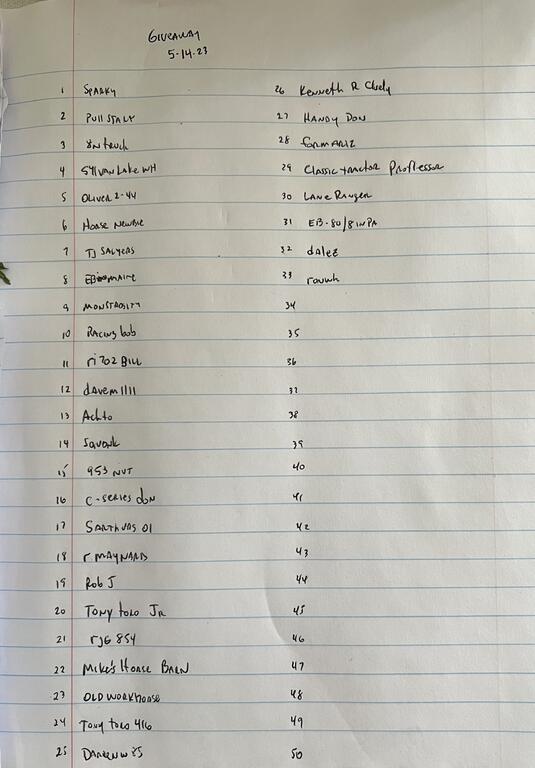 GIVEAWAY
5-14-23
1 SPARKY
2 PULLSTART
3 8N truck
4 SYLVAN LAKE WH
5 OLIVER 2-44
6 HORSE NEWBIE
7 TJ SALYERS
8 EB MAINE
9 MONSTROSITY
10 RACING bob
11 ri702 BILL
12 davem1111
13 Achto
14 Squonk
15 953 NUT
16 C-SERIES don
17 01
18 r MAYNARD
19 Rob J
20 TONY toro Jr
21 rjg 854
22 Mike's Horse BARN
23 OLD WORKHORSE
24 Tony toro 416
25 DARRENW 85
26 Kenneth R
27 HANDY DON
28 formariz
29 Classic tractor Proffessor
30 LANE RANGER
31 EB-80/8 IN PA
32 dalez
33
34
35
36
37
38
39
40
41
42
43
44
45
46
47
48
49
50